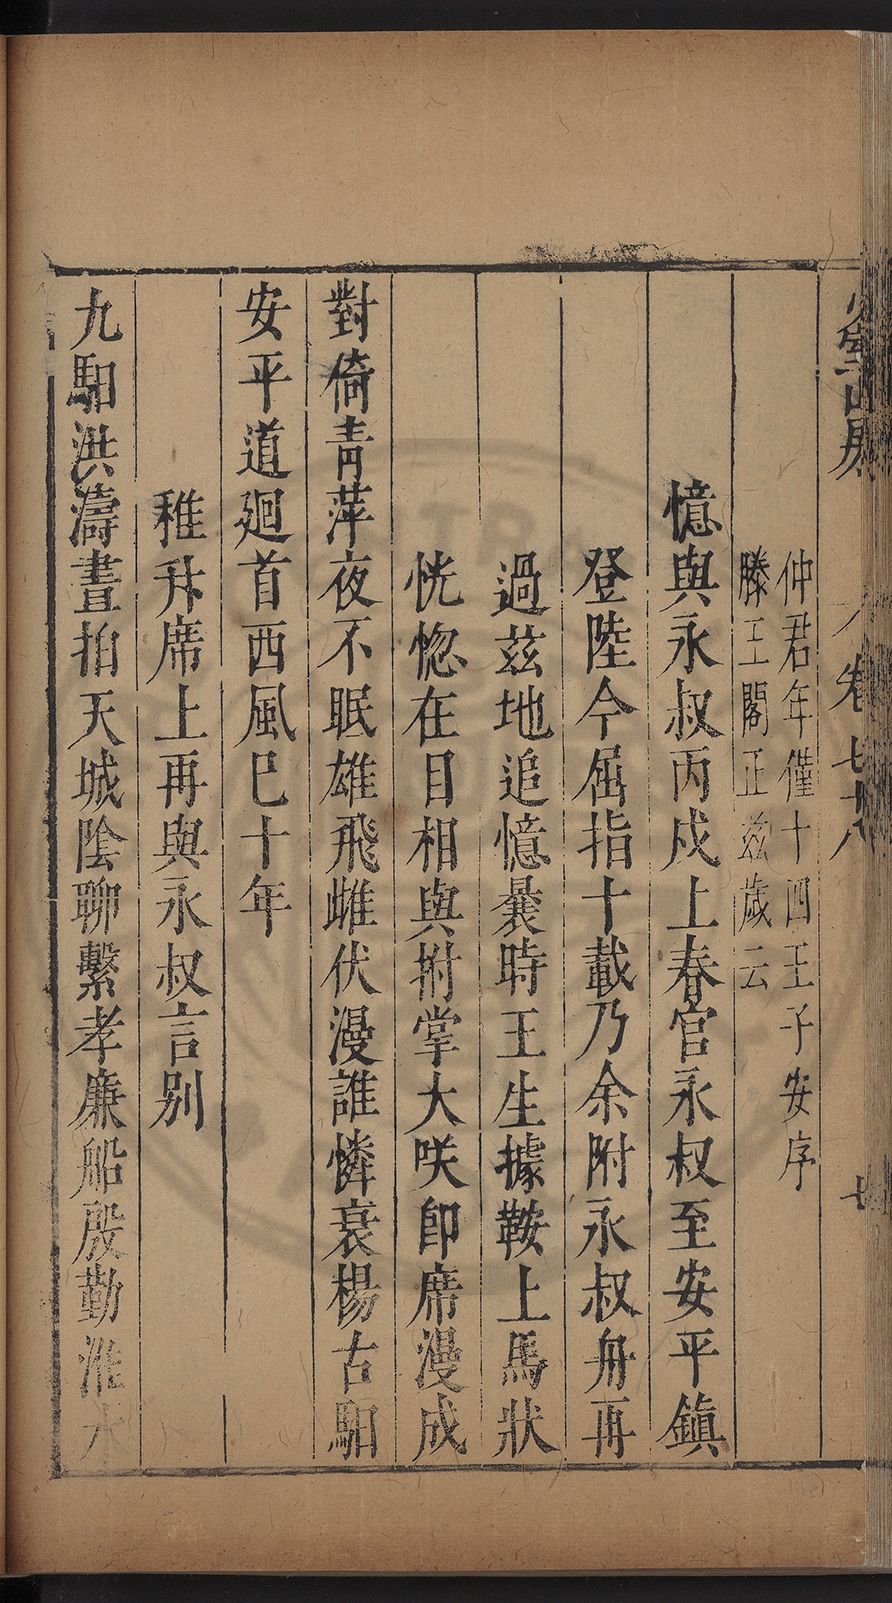 仲君年僅十四王子安序
滕王閣正茲歲云
憶與永叔丙戍上春官永叔至安平鎮
登陸今屈指十載乃余附永叔舟再
過茲地追憶曩時王生據鞍上馬狀
恍惚在目相與拊掌大咲卽席漫成
對倚青萍夜不眠雄飛雌伏漫誰憐衰楊古馹
安平道廻首西風巳十年
稚升席上再與永叔言別
九馹洪濤晝拍天城陰聊繫孝廉船殷勤淮水